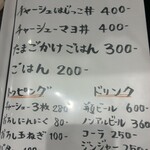 チャーシューはじっこ丼 400-
チャーシューマヨ丼 400-
たまごかけごはん 300-
ごはん 200-
トッピング
ドリンク
チャーシュー3枚 280-
ビール 600-
おろしにんにく 80-
ノンアルビール 360-
玉ねぎ 100-
コーラ 250-
ジンジャー 250-